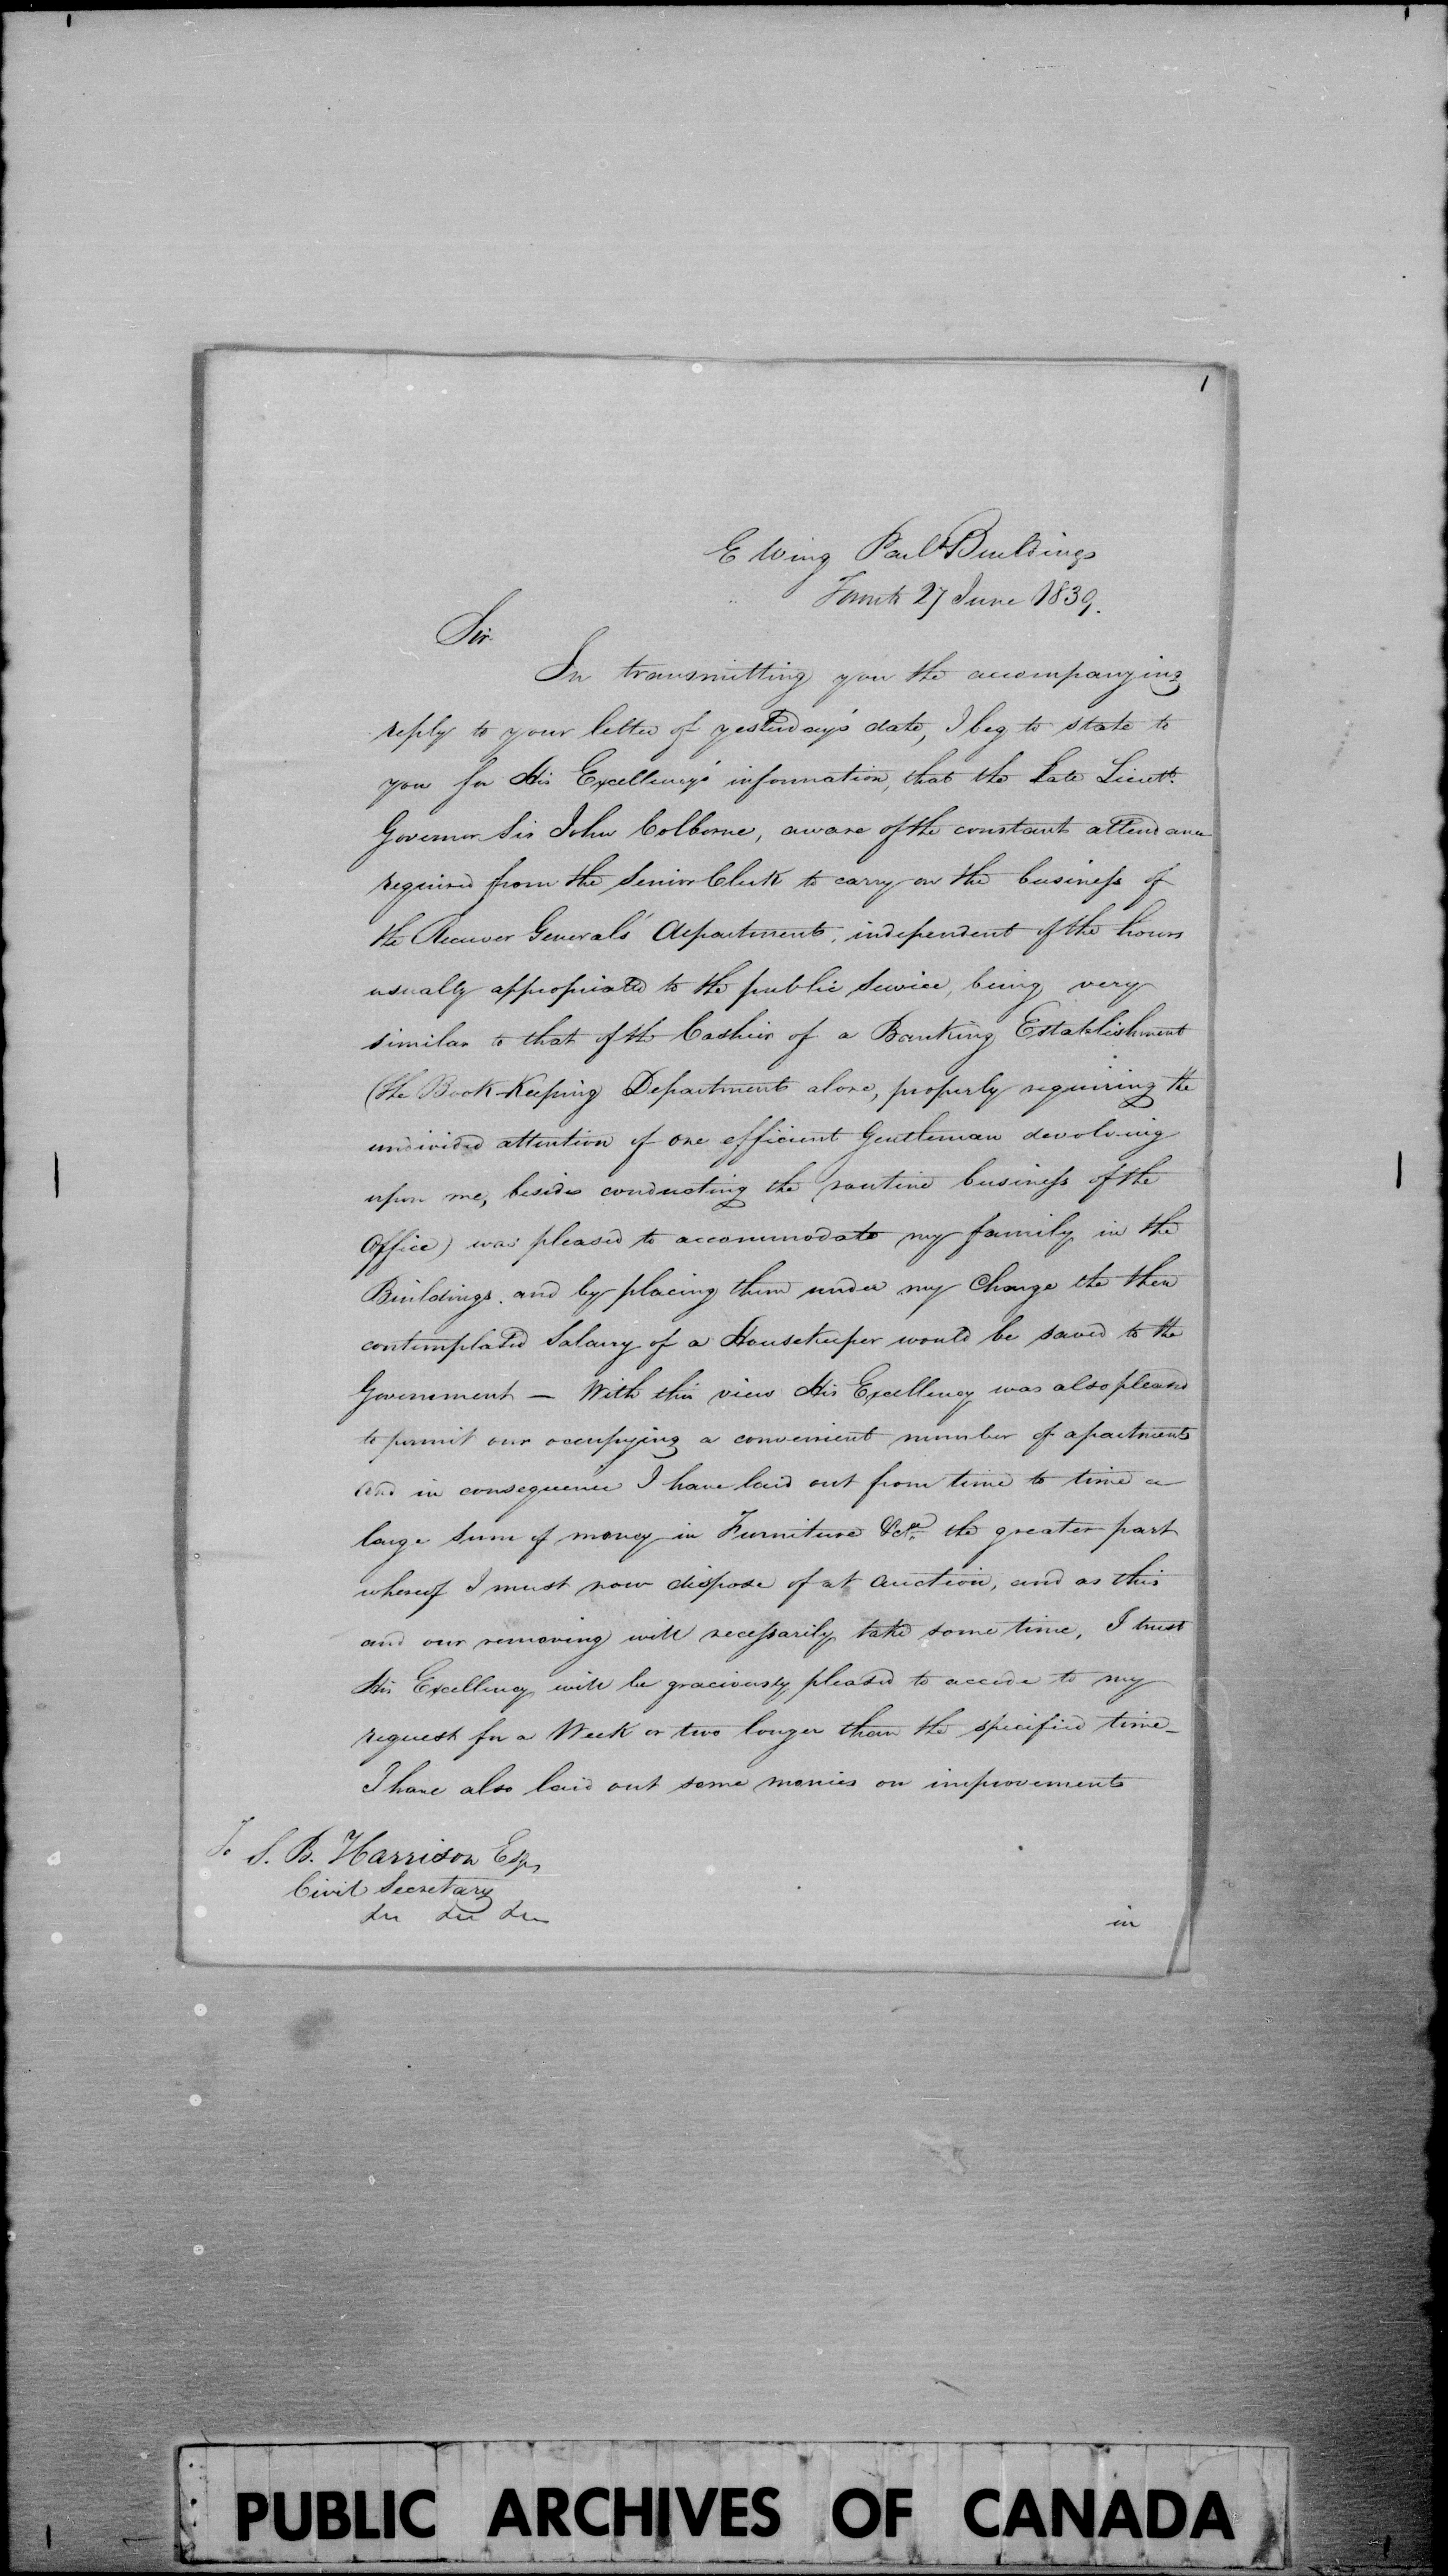 1
E Wing Parl.t Buildings
Toronto 27 June 1839.
Sir
In transmitting you the accompanying
reply to your letter of yesterday's date, I beg to state to
you for His Excellency's information, that the late Lieut.t
Governor Sir John Colborne, aware of the constant attendance
required from the Senior Clerk to carry on the business of
the Receiver General's department, independent of the hours
usually appropriated to the public service, being very
similar to that of the Cashier of a Banking Establishment
(the Book-Keeping Department alone, properly requiring the
undivided attention of one efficient Gentleman devolving
upon me, besides conducting the routine business of the
Office) was pleased to accommodate my family in the
Buildings, and by placing them under my Charge the then
contemplated Salary of a Housekeeper would be saved to the
Government — With this view His Excellency was also pleased
to permit our occupying a convenient number of apartments
and in consequence I have laid out from time to time a
large Sum of money in Furniture &c.a the greater part
whereof I must now dispose of at Auction, and as this
and our removing will necessarily take some time, I trust
His Excellency will be graciously pleased to accede to my
request for a Week or two longer than the specified time—
I have also laid out some monies on improvements
To S. B. Harrison Esq.
Civil Secretary
&c &c &c
in
PUBLIC ARCHIVES OF CANADA